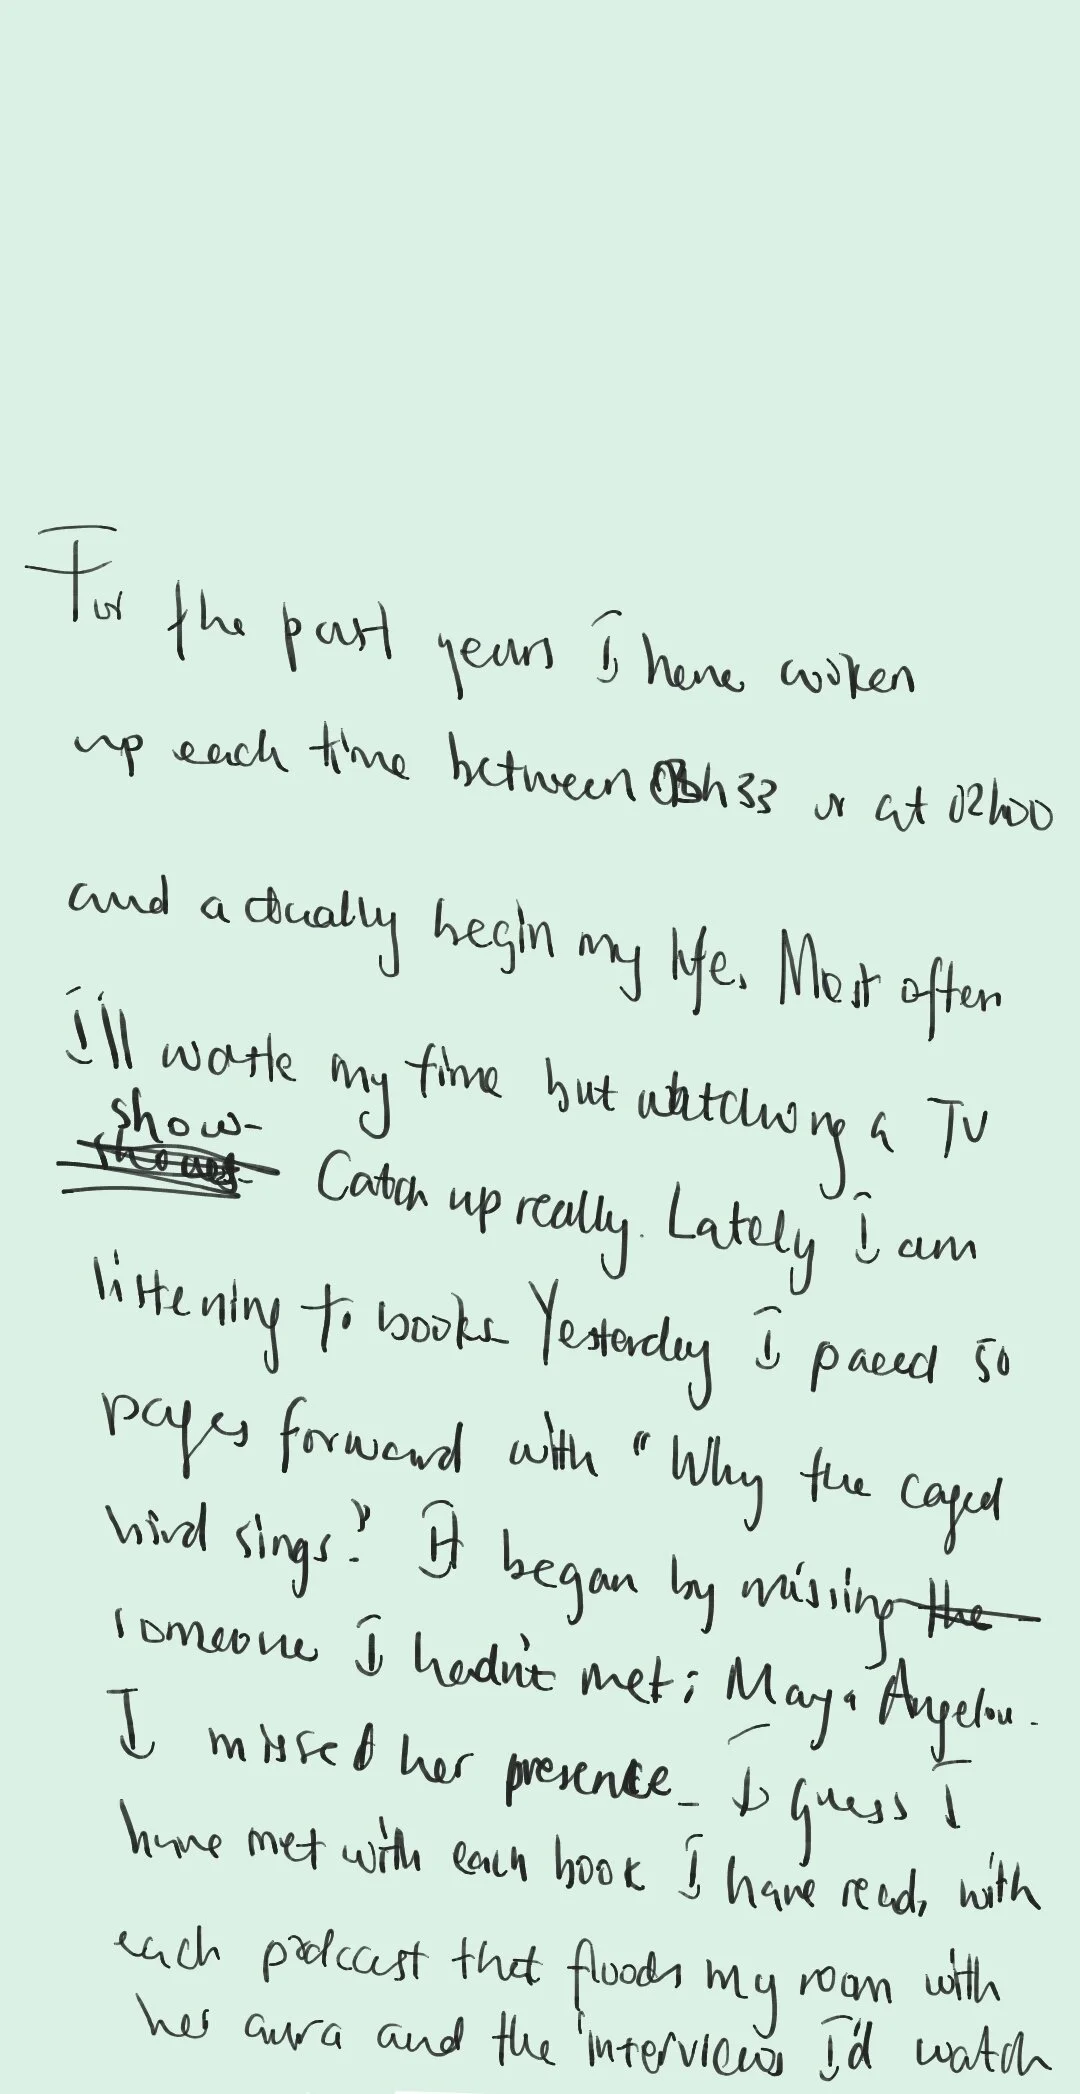 For the past years I have woken
up each time between 03h33 or at 02h00
and actually begin my life. Most often
I'll waste my time but watching a TV
show-
Catch up really. Lately I am
listening to books Yesterday I paced 50
pages forward with "Why the caged
bird sings?" It began by missing the
someone I hadn't met; Maya Angelou.
I missed her presence_ I guess I
have met with each book I have read, with
each podcast that floods my room with
her aura and the interviews I'd watch